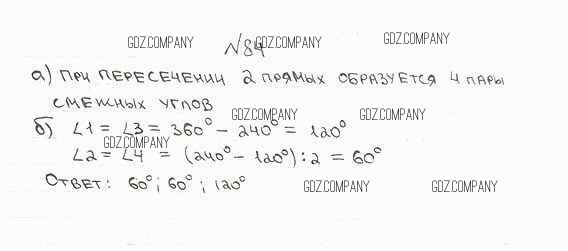 GDZ.COMPANY №84 GDZ.COMPANY GDZ.COMPANY
а) ПРИ ПЕРЕСЕЧЕНИИ 2 ПРЯМЫХ ОБРАЗУЕТСЯ 4 ПАРЫ
СМЕЖНЫХ УГЛОВ
GDZ.COMPANY GDZ.COMPANY
б) ∠1 = ∠3 = 360° - 240° = 120°
GDZ.COMPANY
∠2 = ∠4 = (240° - 120°) : 2 = 60°
ОТВЕТ: 60°; 60°; 120°
GDZ.COMPANY GDZ.COMPANY